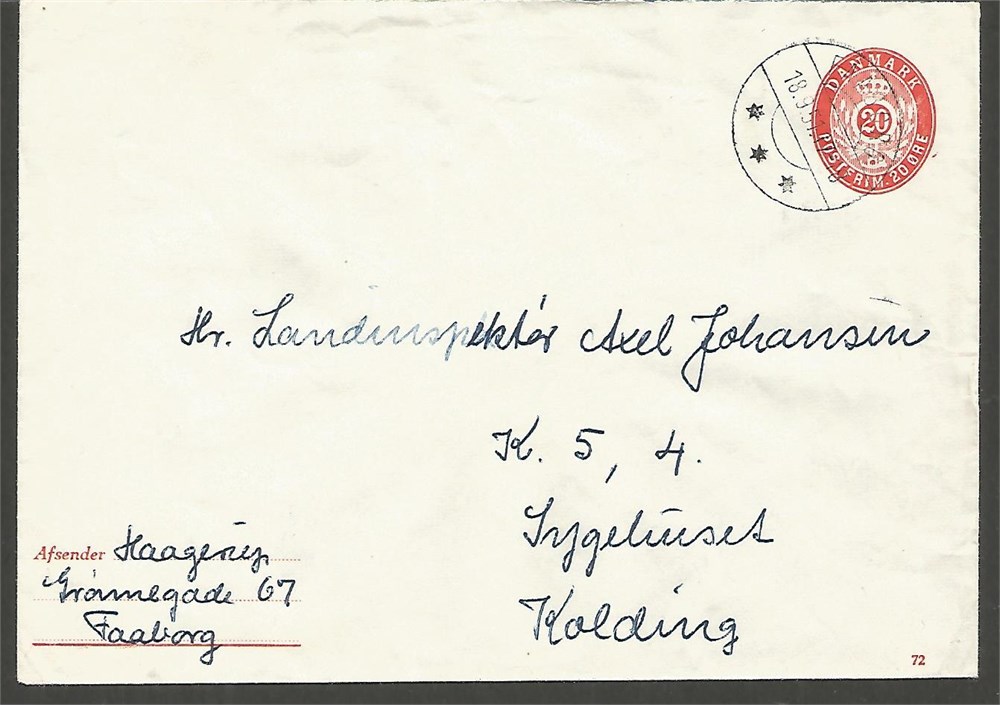 DANMARK
20
POSTFRIM. 20 ØRE
18.9.51.
Hr. Landinspektør Axel Johansen
K. 5, 4.
Sygehuset
Kolding
Afsender Haagerup
Grønnegade 67
Faaborg
72